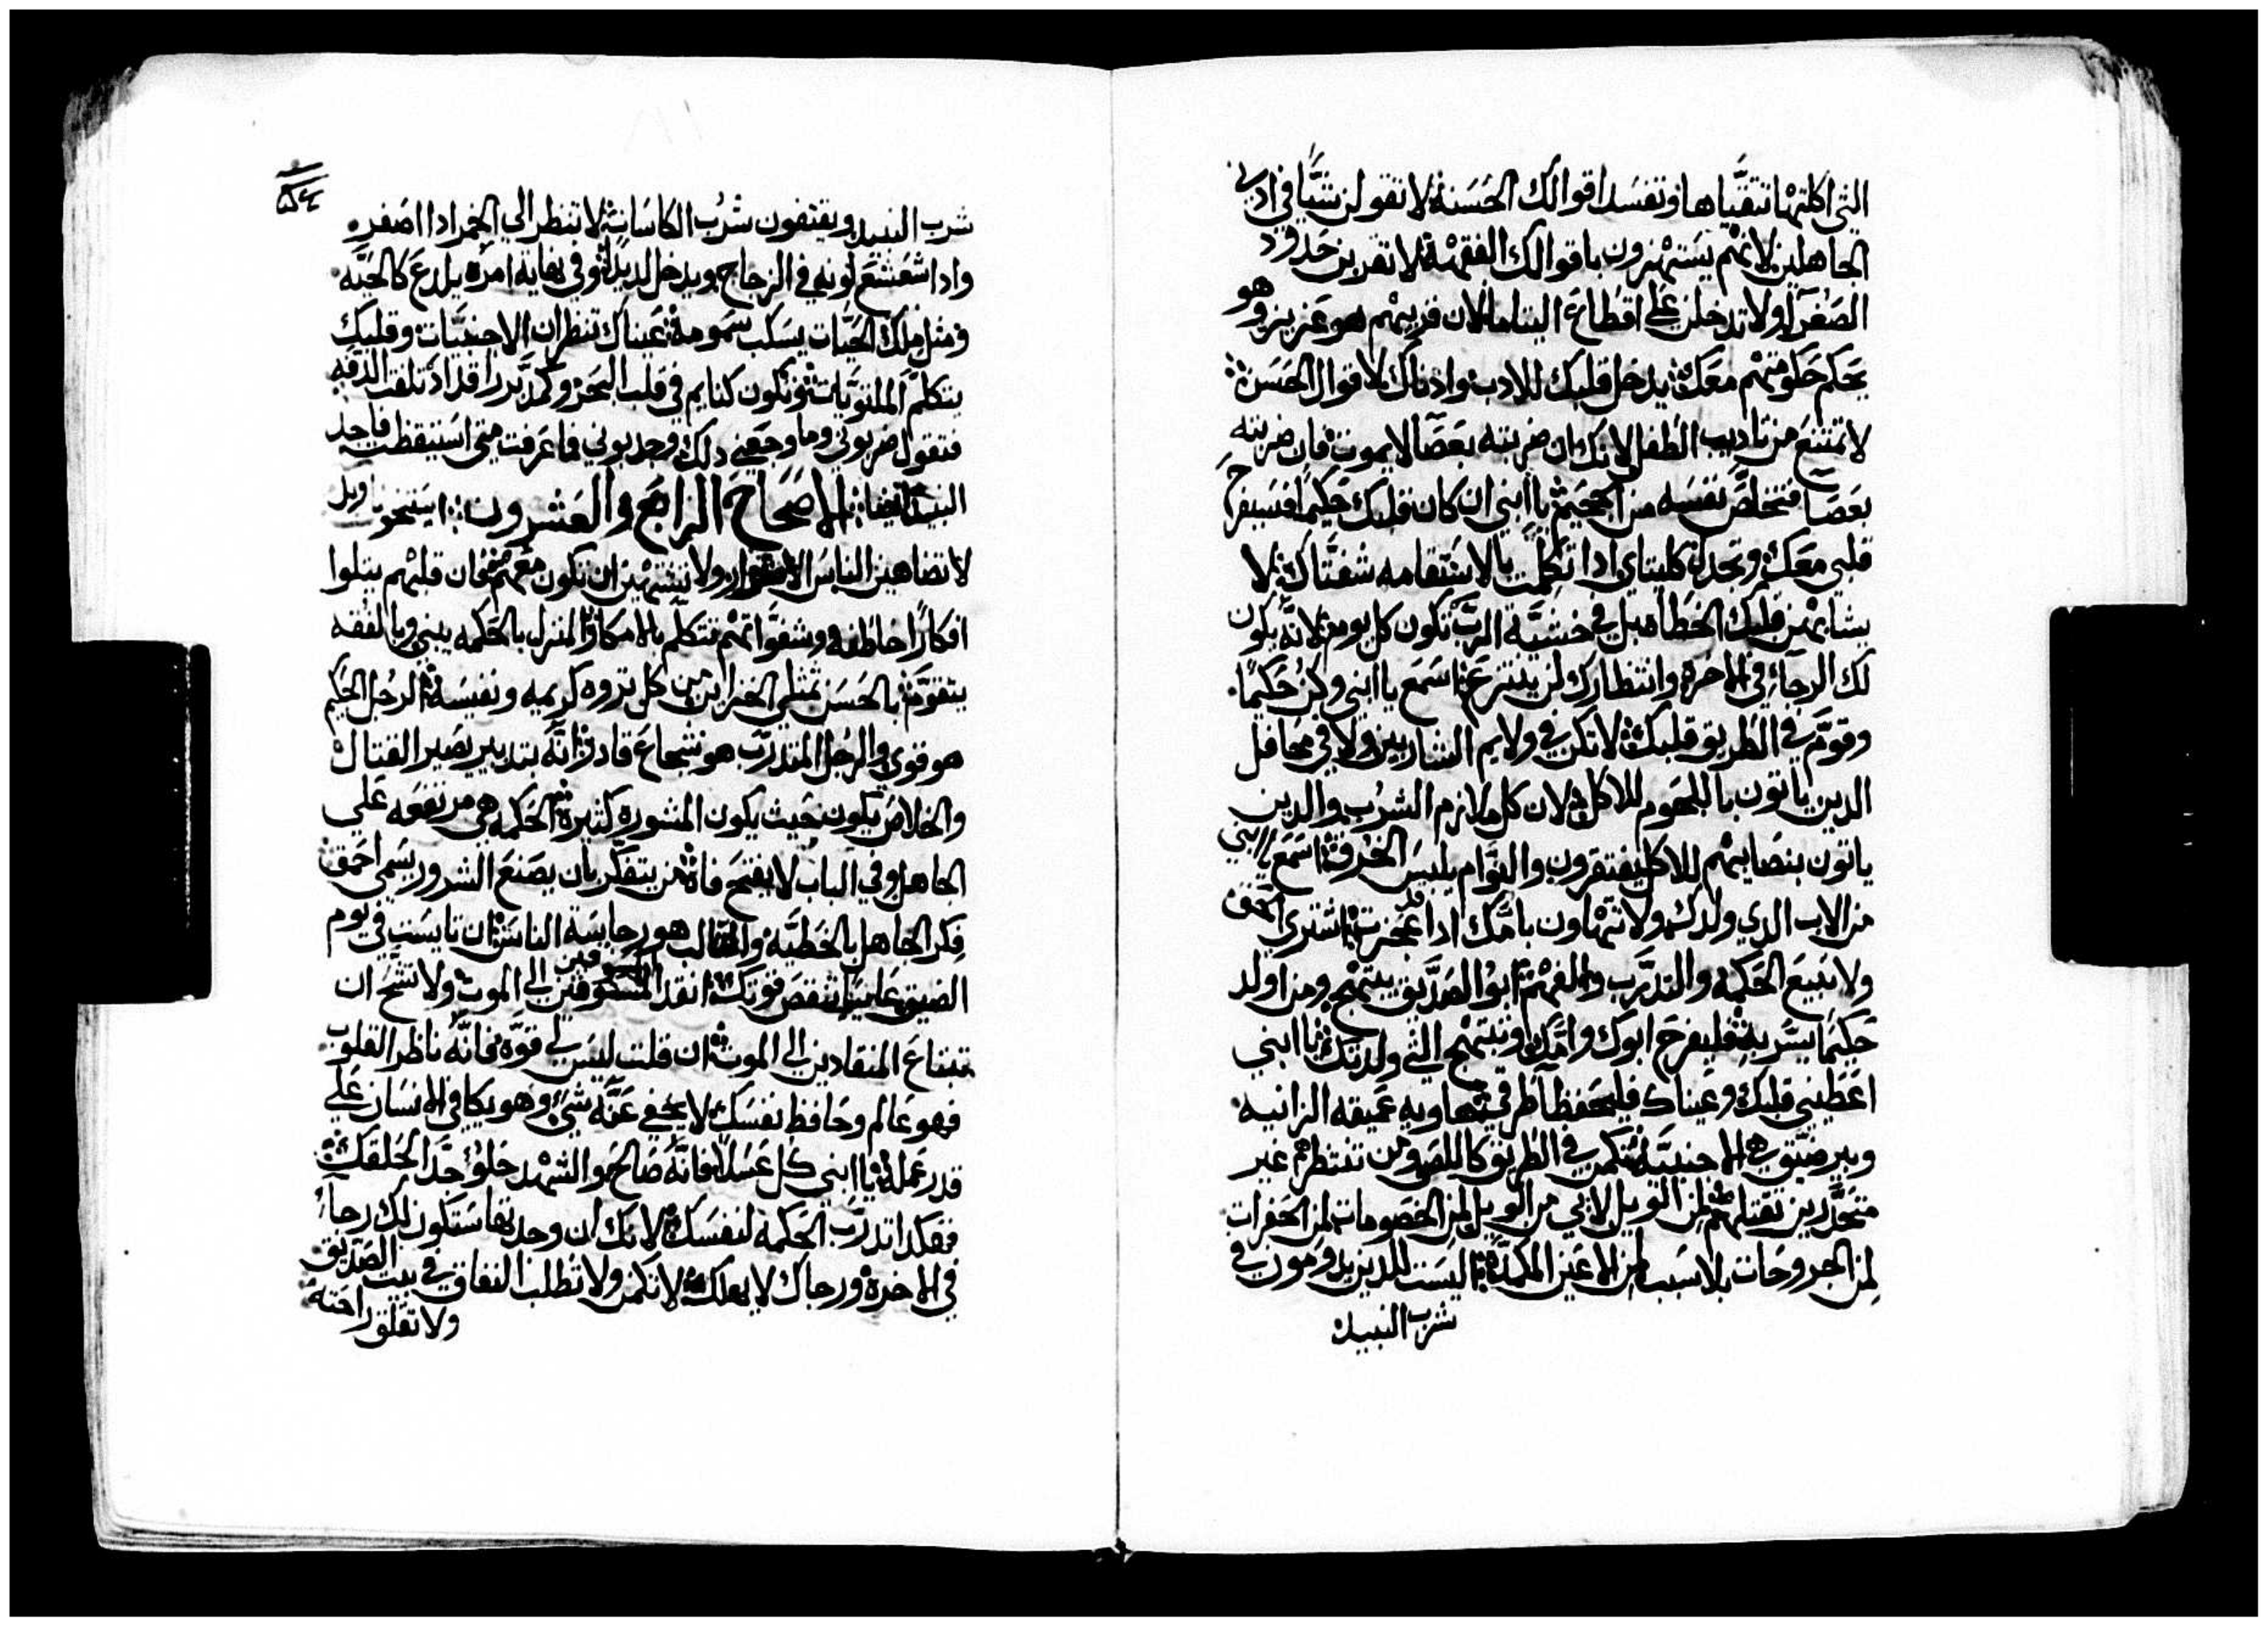 التي اكلتها تتقيَّاها وتفسد اقوالك الحَسَنة لا تقولن شيًّا في اذني
الجاهلين لانهم يَستهزون باقوالك الفقهية لا تقربن حدود
الصغرآ ولا تدخلن علَى اقطاع اليتاما لان قريبهم هو عَزيز وهو
يحَكم حكومتهم معَك يدخل قلبك للادب واذناك لاقوال الحَسَن
لا تمتنع من تاديب الطفل لانك ان ضربته بعَصَا لا يموت فان ضربته
بعَصَا فتخلصَّ نفسَه من الجحيم يا ابني ان كان قلبك حَكيمًا فسَيفرح
قلبي معَك وتجدل كليتاي اذا تكلمت بالاستقامه شفتاك لا
يشايمن قلبك الخطاه بل في خشيَّة الربّ تكون كل يوم لانه يكون
لك الرجآء في الاخره وانتظارك لن ينتزعَ اسَمع يا ابني وكن حَكيمًا
وقوّم في الطريق قلبك لا تكن في ولايم الشاربين ولا في محَافل
الدين ياتون باللحوم للاكل لان كل ملازم الشرب والدين
ياتون بنصَايبهم للاكل يفتقرون والنوَّام يلبسَ الخرق اسمَع يا ابني
من الاب الدي ولدك ولا تتهاون بامّك ادا قد عَجزت اشتري الحق
ولا تبيعَ الحَكمه والتدرّب والفهم ابو الصَدّيق يبتهج ومن اولد
حَكيمًا يسَّر به فليفرح ابوك وامّك وتبتهج التي ولدتك يا ابني
اعَطيني قلبك وعَيناك فليحَفظا طرقي هاويه عَميقه الزانيه
وبير ضيّق هي الاجنبيَّة تكمن في الطريق كاللص ومن تنتظرهم غير
متحَدّرين تقتلهم لمن الويل لابي من الويل لمن الخصَومات لمن الحَفرات
لمن الجروحَات بلا سَبب لمن الاعَين المكمدَّه اليسَت للدين يدومون في
شرب النبيد
شرب النبيد ويقتفون شرب الكاسَات لا تنظر الي الخمر ادا اصَفر
وادا شعَشعَ لونه في الزجاج ويدخل لديداً وفي نهاية امره يلدعَ كالحَيَّه
ومثل ملك الحَيَّات يسَكب سَمومه عَيناك تنظران الاجنبيَّات وقلبك
يتكلَّم الملتويَّات وتكون كنايم في قلب البحَر وكمدَّبر راقد اذ تلفت الدفه
فتقول ضربوني وما وجعَني دلك وجدبوني فما عَرفت متي اسَتيقظت فاجد
النبيد ايضَا الاصَحَاح الرابعَ والعَشرون
لا تضاهين الناسَ الاشرار ولا تشتهين ان تكون معَهم فان قلبهم يتلوا
افكارًا خاطفه وشفواتهم تتكلّم بالامكار المنزل بالحَكمه يبني وبالفقه
يتقوّم بالحَسَن تمتلي الخزاين من كل تروه كريمه ونفيسَه الرجل الحَكيم
هو قوي والرجل المتدرّب هو شجاعَ قادر انَّه بتدبير يصَير القتال
والخلاص يكون حَيث يكون المشوره كثيرة الحَكمه هي مرتفعَه عَلي
الجاهل وفي الباب لا يفتح فاه من يتفكّر بان يصَنعَ الشرور يسَمي احمَق
فكر الجاهل بالخطيَّه والثالب هو رجاسَة الناسَ ان تايسَت في يوم
الضيق عَاييًا تنقصَ قوتك انقد المسَوقين الي الموت ولا تشحّ ان
تبتاعَ المنقادين الي الموت ان قلت ليسَ لي قوّه فانَّه ناظر القلوب
فهو عَالم وحَافظ نفسَك لا يخفي عَنَّه شي وهو يكافي الانسَان عَلي
قدر عَمله يا ابني كل عَسَلاً فانّه صَالح والشهد حَلو جدَّا لحَلقك
فهكدا تدرّب الحَكمه لنفسَك لانك ان وجدتها سَتكون لك رجاء
في الاخره ورجاك لا يهلك لا تكمن ولا تطلب النفاق في بيت الصَّديق
ولا تقلق راحَته